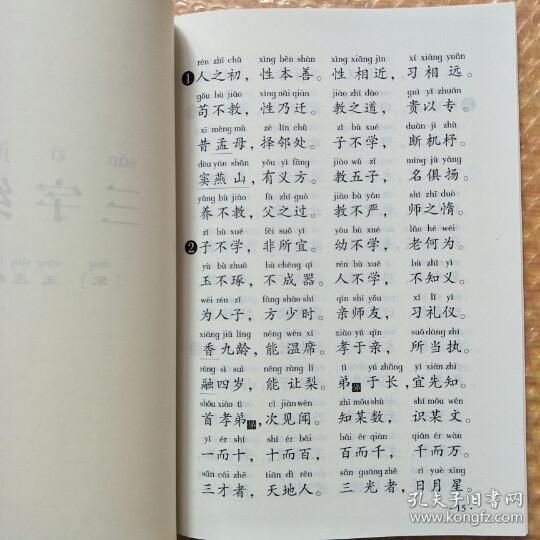 rén zhī chū xìng běn shàn xìng xiāng jìn xí xiāng yuǎn
❶人之初，性本善。性相近，习相远。
gǒu bú jiào xìng nǎi qiān jiào zhī dào guì yǐ zhuān
苟不教，性乃迁。教之道，贵以专。
xī mèng mǔ zé lín chǔ zǐ bù xué duàn jī zhù
昔孟母，择邻处。子不学，断机杼。
dòu yān shān yǒu yì fāng jiào wǔ zǐ míng jù yáng
窦燕山，有义方。教五子，名俱扬。
yǎng bú jiào fù zhī guò jiào bù yán shī zhī duò
养不教，父之过。教不严，师之惰。
zǐ bù xué fēi suǒ yí yòu bù xué lǎo hé wéi
❷子不学，非所宜。幼不学，老何为。
yù bù zhuó bù chéng qì rén bù xué bù zhī yì
玉不琢，不成器。人不学，不知义。
wéi rén zǐ fāng shào shí qīn shī yǒu xí lǐ yí
为人子，方少时。亲师友，习礼仪。
xiāng jiǔ líng néng wēn xí xiào yú qīn suǒ dāng zhí
香九龄，能温席。孝于亲，所当执。
róng sì suì néng ràng lí tì yú zhǎng yí xiān zhī
融四岁，能让梨。弟于长，宜先知。
shǒu xiào tì cì jiàn wén zhī mǒu shù shí mǒu wén
首孝弟，次见闻。知某数，识某文。
yī ér shí shí ér bǎi bǎi ér qiān qiān ér wàn
一而十，十而百，百而千，千而万。
sān cái zhě tiān dì rén sān guāng zhě rì yuè xīng
三才者，天地人。三光者，日月星。
·15·
孔夫子旧书网
www.kongfz.com